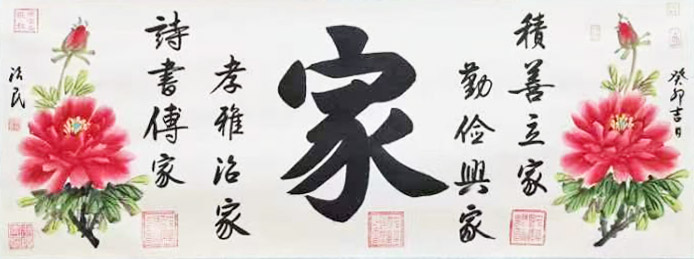 癸卯吉日
積善立家
勤俭興家
家
孝雅治家
詩書傳家